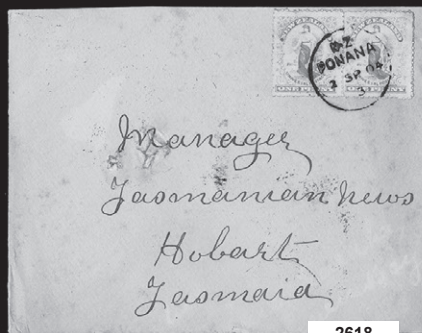 N-Z
PONANA
2 SP 04
3
ONE PENNY
Manager
Tasmanian News
Hobart
Tasmaia
2618